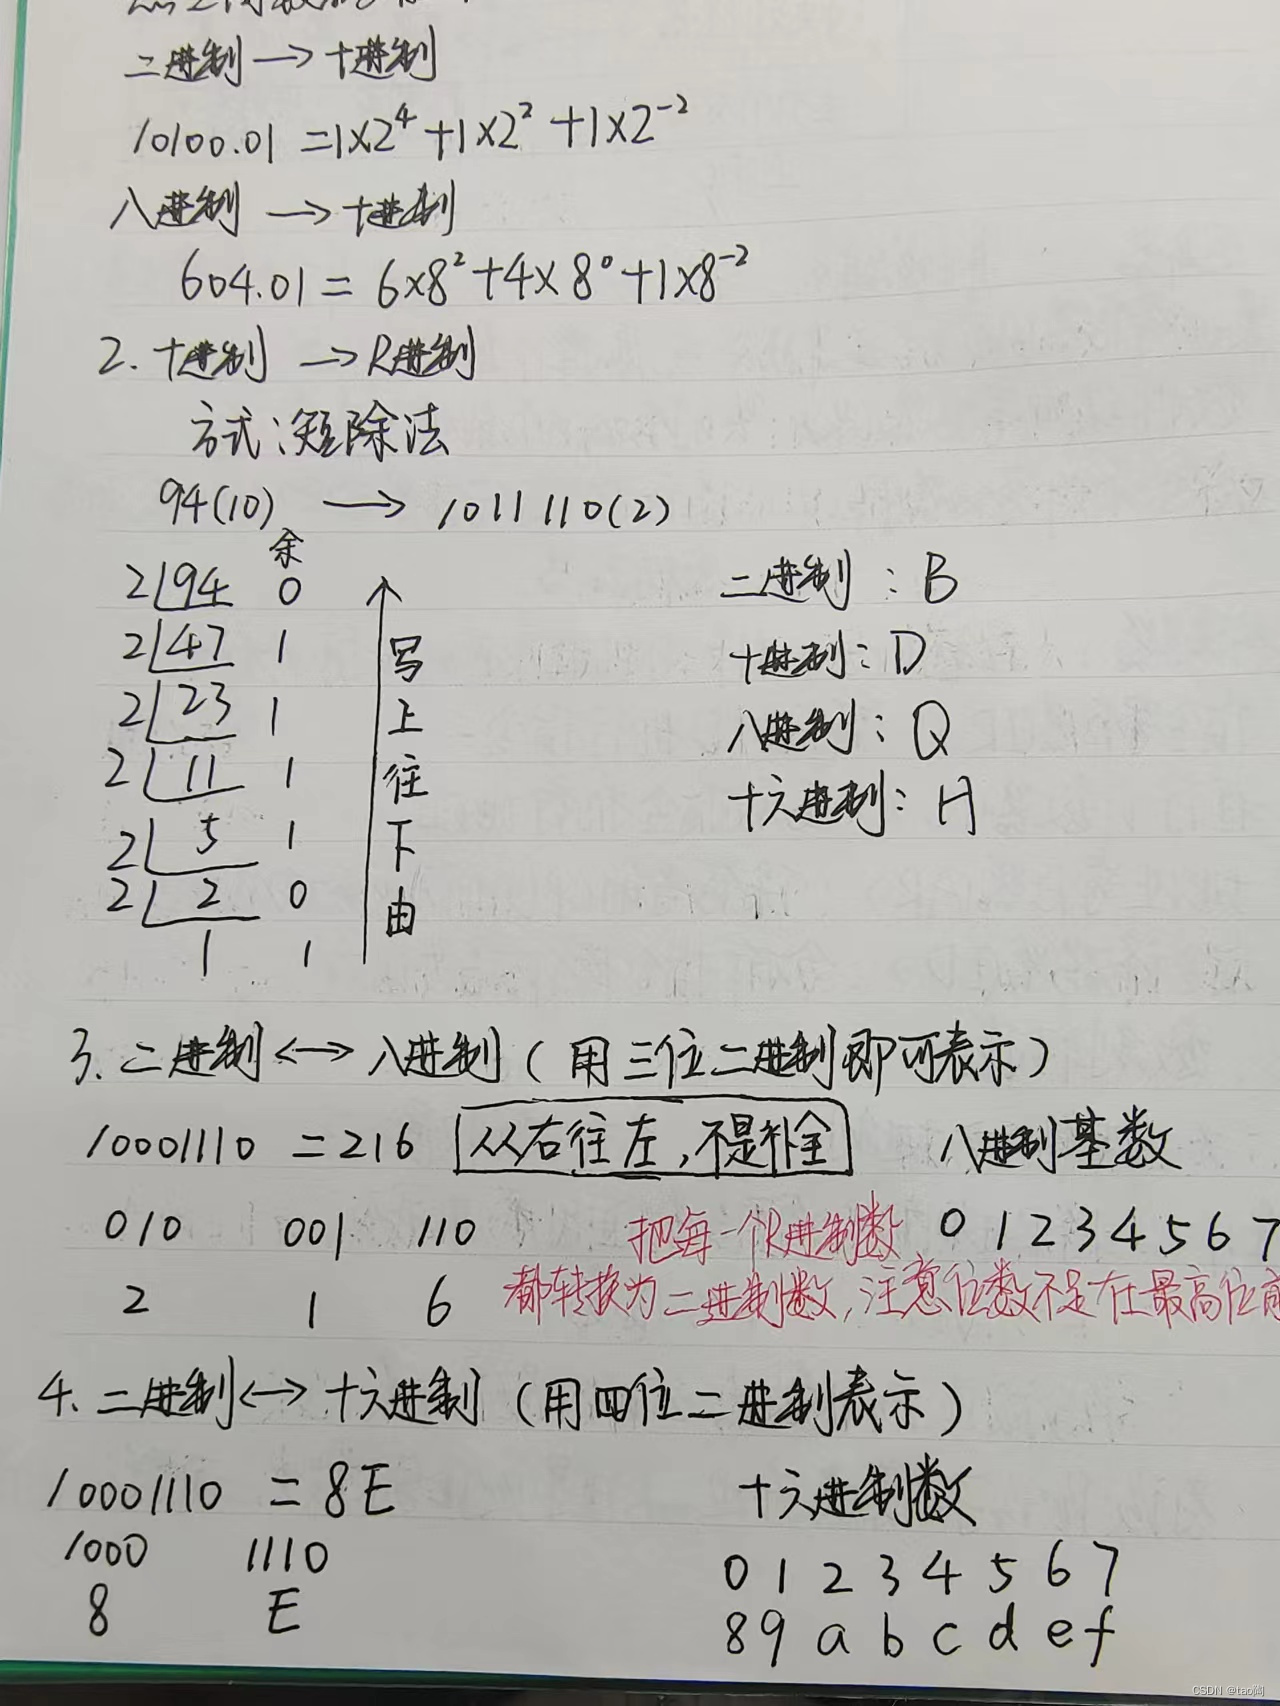 二进制 → 十进制
10100.01 = 1×2⁴ + 1×2² + 1×2⁻²
八进制 → 十进制
604.01 = 6×8² + 4×8⁰ + 1×8⁻²
2. 十进制 → R进制
方式:短除法
94(10) → 1011110(2)
余
2 94 0
2 47 1
2 23 1
2 11 1
2 5 1
2 2 0
1 1
写
上
往
下
由
二进制:B
十进制:D
八进制:Q
十六进制:H
3. 二进制 ↔ 八进制(用三位二进制即可表示)
10001110 = 216 从右往左,不是补全
010 001 110
2 1 6
八进制基数
0 1 2 3 4 5 6 7
把每一个R进制数
都转换为二进制数,注意位数不足在最高位
4. 二进制 ↔ 十六进制(用四位二进制表示)
10001110 = 8E
1000 1110
8 E
十六进制数
0 1 2 3 4 5 6 7
8 9 a b c d e f
CSDN @tao阎